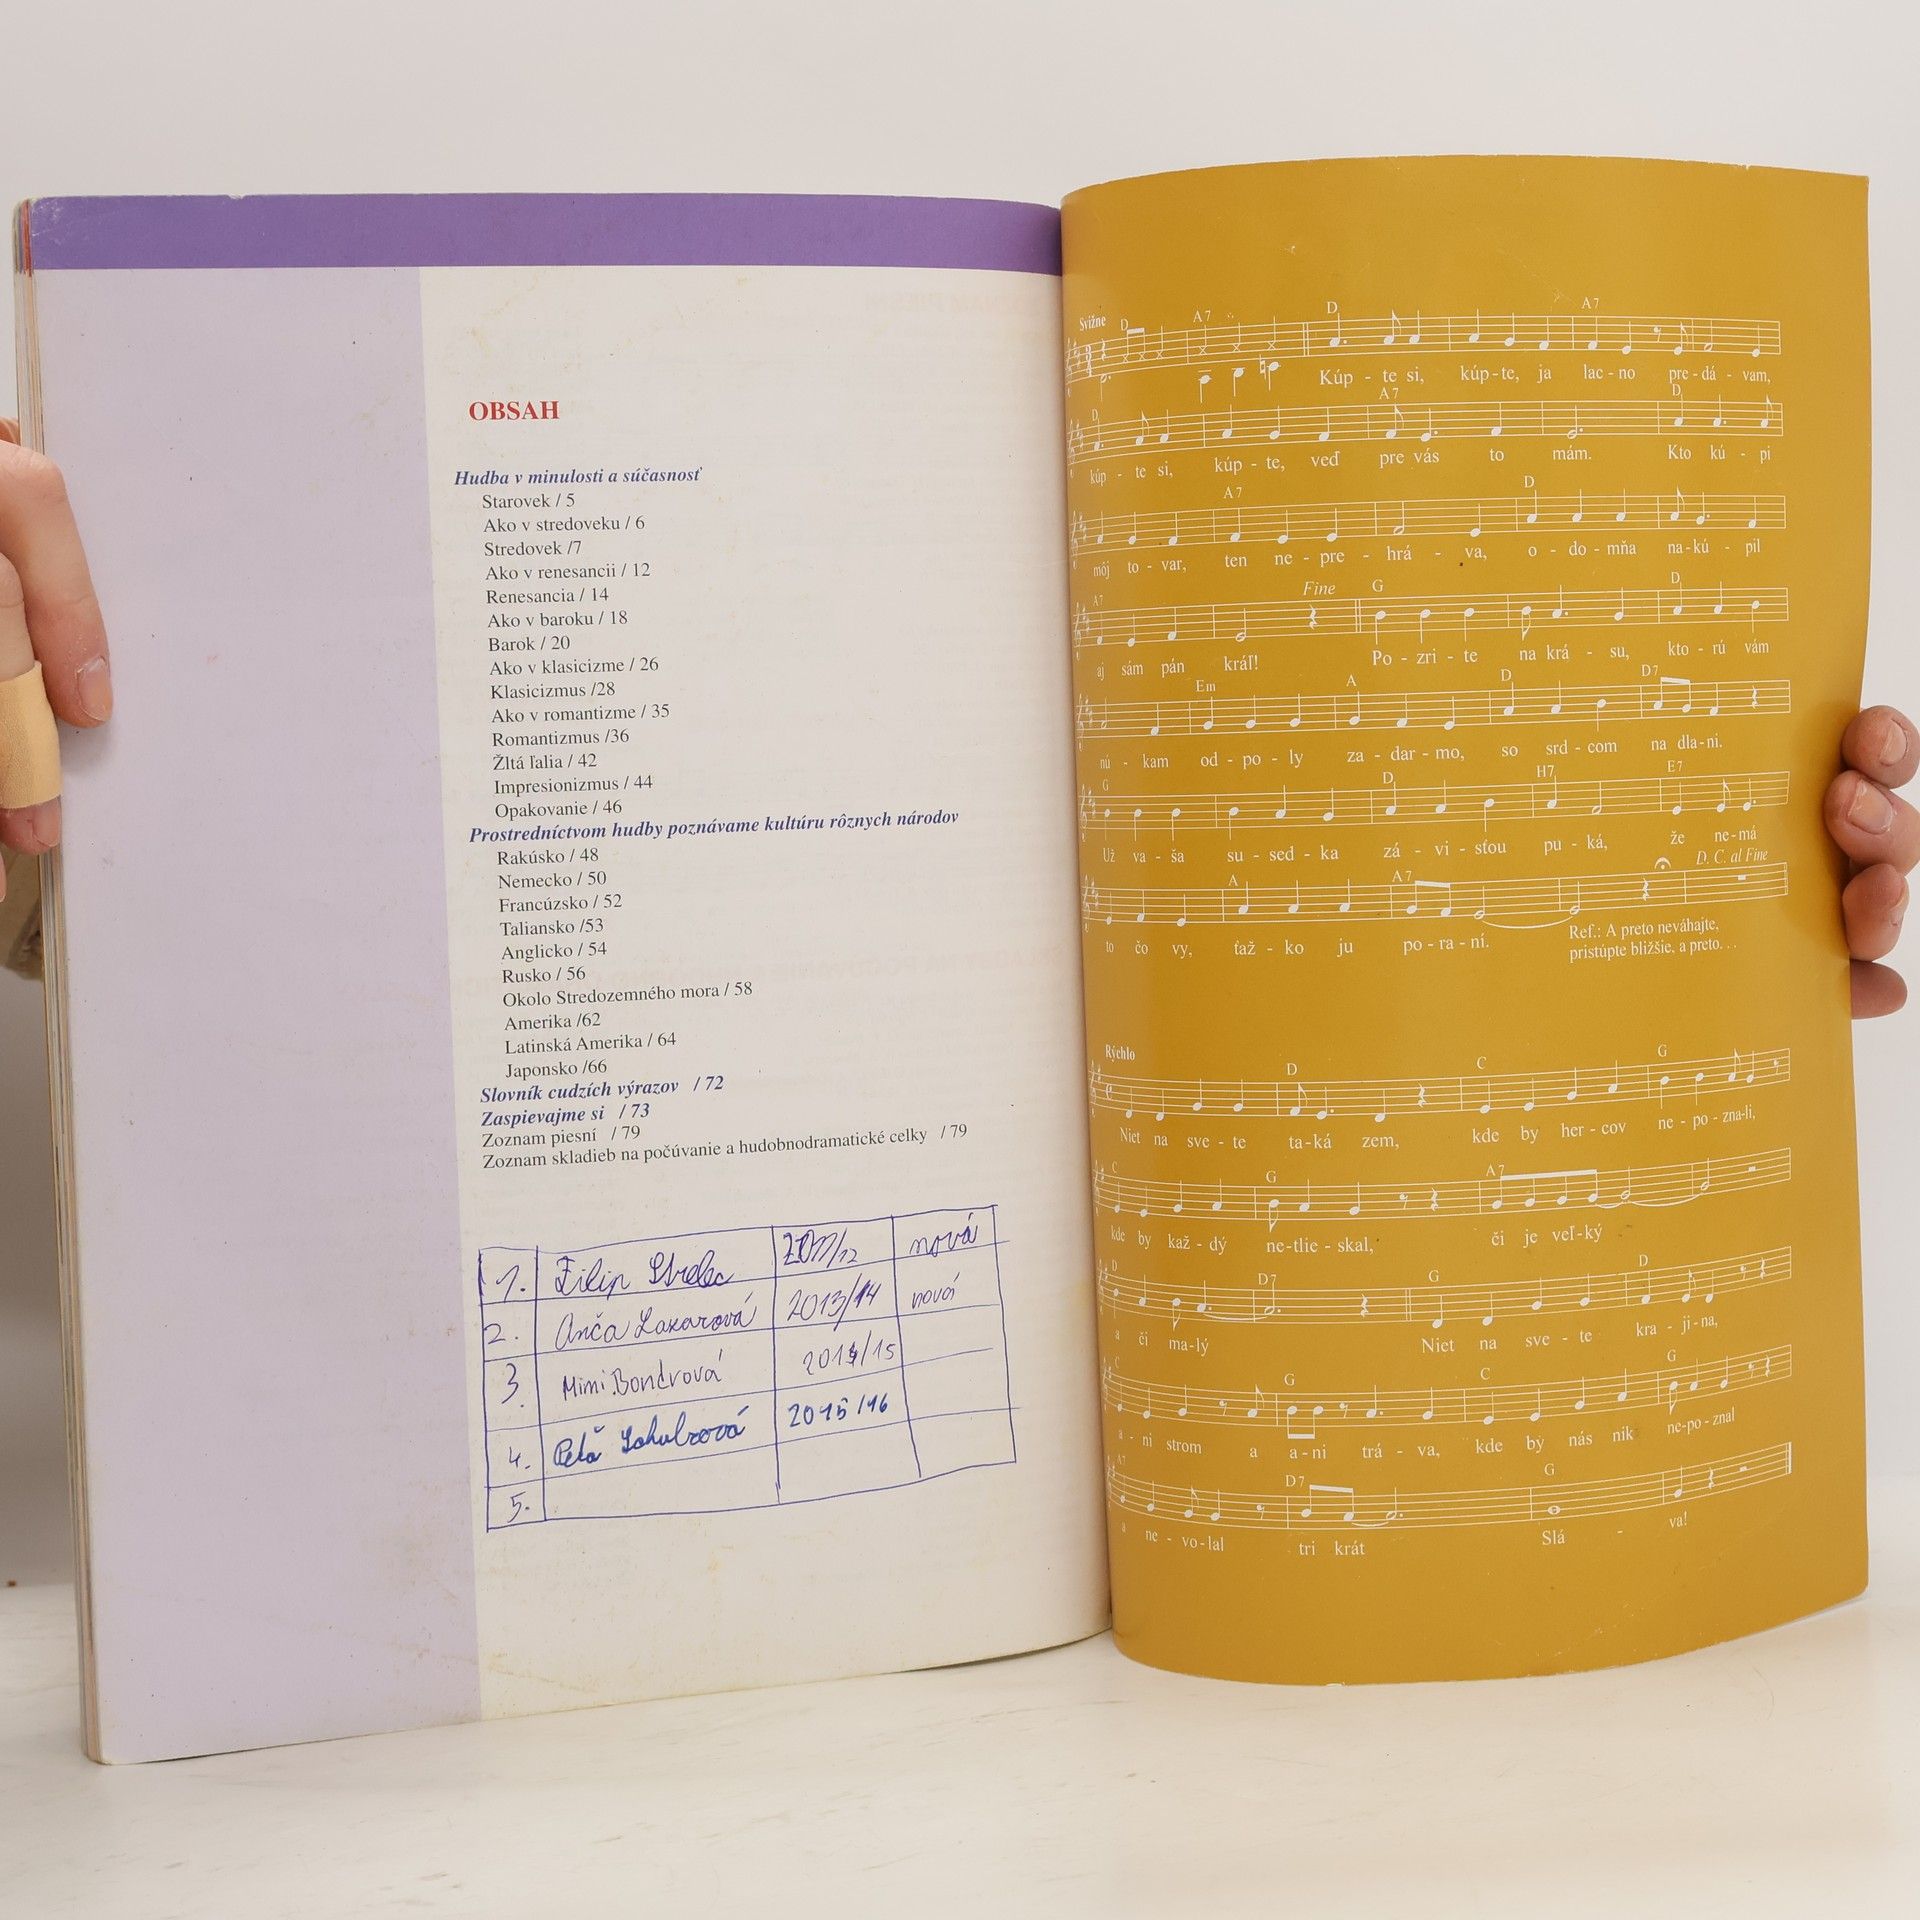 OBSAH
Hudba v minulosti a súčasnosť
Starovek / 5
Ako v stredoveku / 6
Stredovek /7
Ako v renesancii / 12
Renesancia / 14
Ako v baroku / 18
Barok / 20
Ako v klasicizme / 26
Klasicizmus /28
Ako v romantizme / 35
Romantizmus /36
Žltá ľalia / 42
Impresionizmus / 44
Opakovanie / 46
Prostredníctvom hudby poznávame kultúru rôznych národov
Rakúsko / 48
Nemecko / 50
Francúzsko / 52
Taliansko /53
Anglicko / 54
Rusko / 56
Okolo Stredozemného mora / 58
Amerika /62
Latinská Amerika / 64
Japonsko /66
Slovník cudzích výrazov / 72
Zaspievajme si / 73
Zoznam piesní / 79
Zoznam skladieb na počúvanie a hudobnodramatické celky / 79
1. Filip Strelec 2011/12 nová
2. Anča Lazarová 2013/14 nová
3. Mimi Bondrová 2014/15
4. Peťa 2015/16
5.
Svižne D A7 D A7
Kúp - te si, kúp - te, ja lac - no pre - dá - vam,
D A7 D
kúp - te si, kúp - te, veď pre vás to mám. Kto kú - pi
A7 D
môj to - var, ten ne - pre - hrá - va, o - do - mňa na - kú - pil
A7 Fine G D
aj sám pán kráľ! Po - zri - te na krá - su, kto - rú vám
Em A D D7
nú - kam od - po - ly za - dar - mo, so srd - com na dla - ni.
G D H7 E7
Už va - ša su - sed - ka zá - vi - sťou pu - ká, že ne - má
D. C. al Fine
A A7
to čo vy, ťaž - ko ju po - ra - ní.
Ref.: A preto neváhajte,
pristúpte bližšie, a preto. . .
Rýchlo D C G
Niet na sve - te ta - ká zem, kde by her - cov ne - po - zna - li,
C G A7
kde by kaž - dý ne - tlie - skal, či je veľ - ký
D D7 G D
a či ma - lý Niet na sve - te kra - ji - na,
C G C G
a - ni strom a a - ni trá - va, kde by nás nik ne - po - znal
A7 D7 G
a ne - vo - lal tri krát Slá - va!